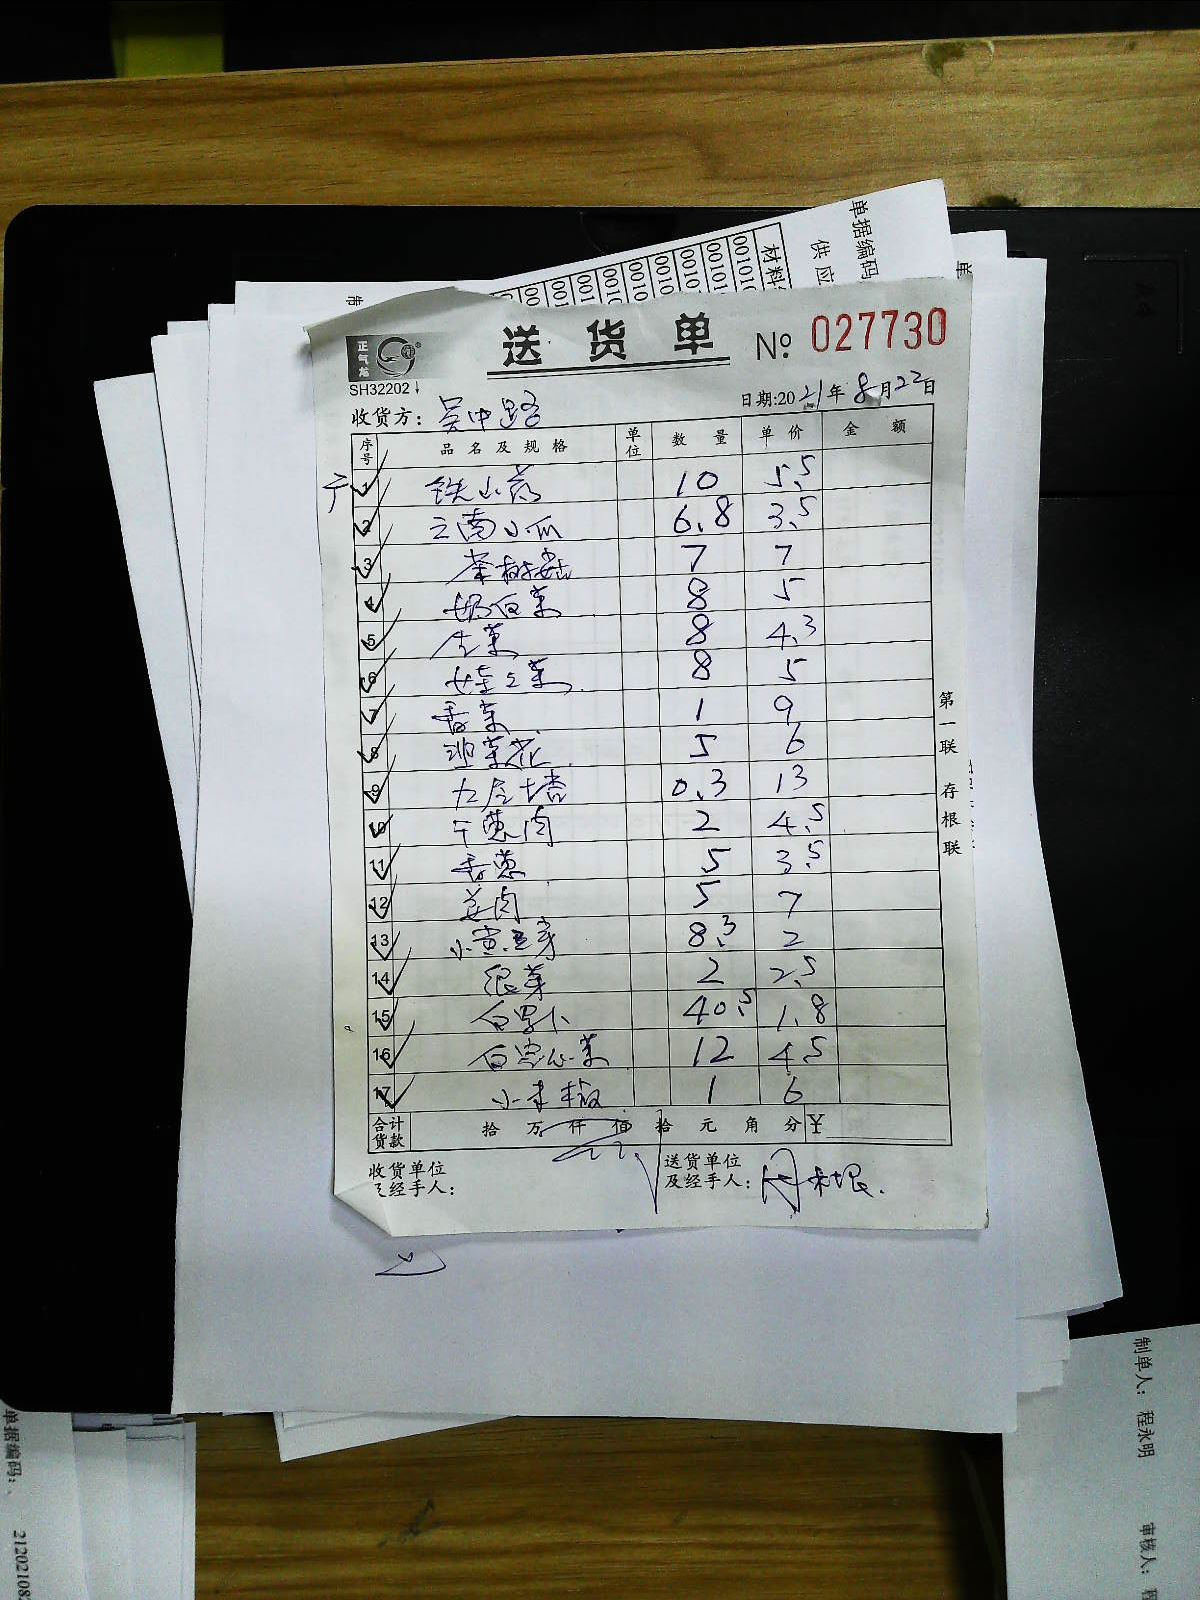 单据编码
供应
材料
00101
00101
00101
0010
0010
0010
0010
001
001
00
制
单
正气龙
SH32202
送货单
№ 027730
收货方：吴中路
日期:2021年8月22日
序号 品名及规格 单位 数量 单价 金额
1 铁山药 10 5.5
2 云南小瓜 6.8 3.5
3 茶树菇 7 7
4 奶白菜 8 5
5 生菜 8 4.3
6 娃娃菜 8 5
7 香菜 1 9
8 菜花 5 6
9 九层塔 0.3 13
10 干葱肉 2 4.5
11 香葱 5 3.5
12 姜肉 5 7
13 小黄豆芽 8.3 2
14 银芽 2 2.5
15 白罗卜 40.5 1.8
16 白菜 12 4.5
17 小米椒 1 6
合计货款 拾 万 仟 佰 拾 元 角 分 ¥
第一联 存根联
收货单位
及经手人：
送货单位
及经手人：周根
单据编码：
212021082
制单人： 程永明
审核人： 程